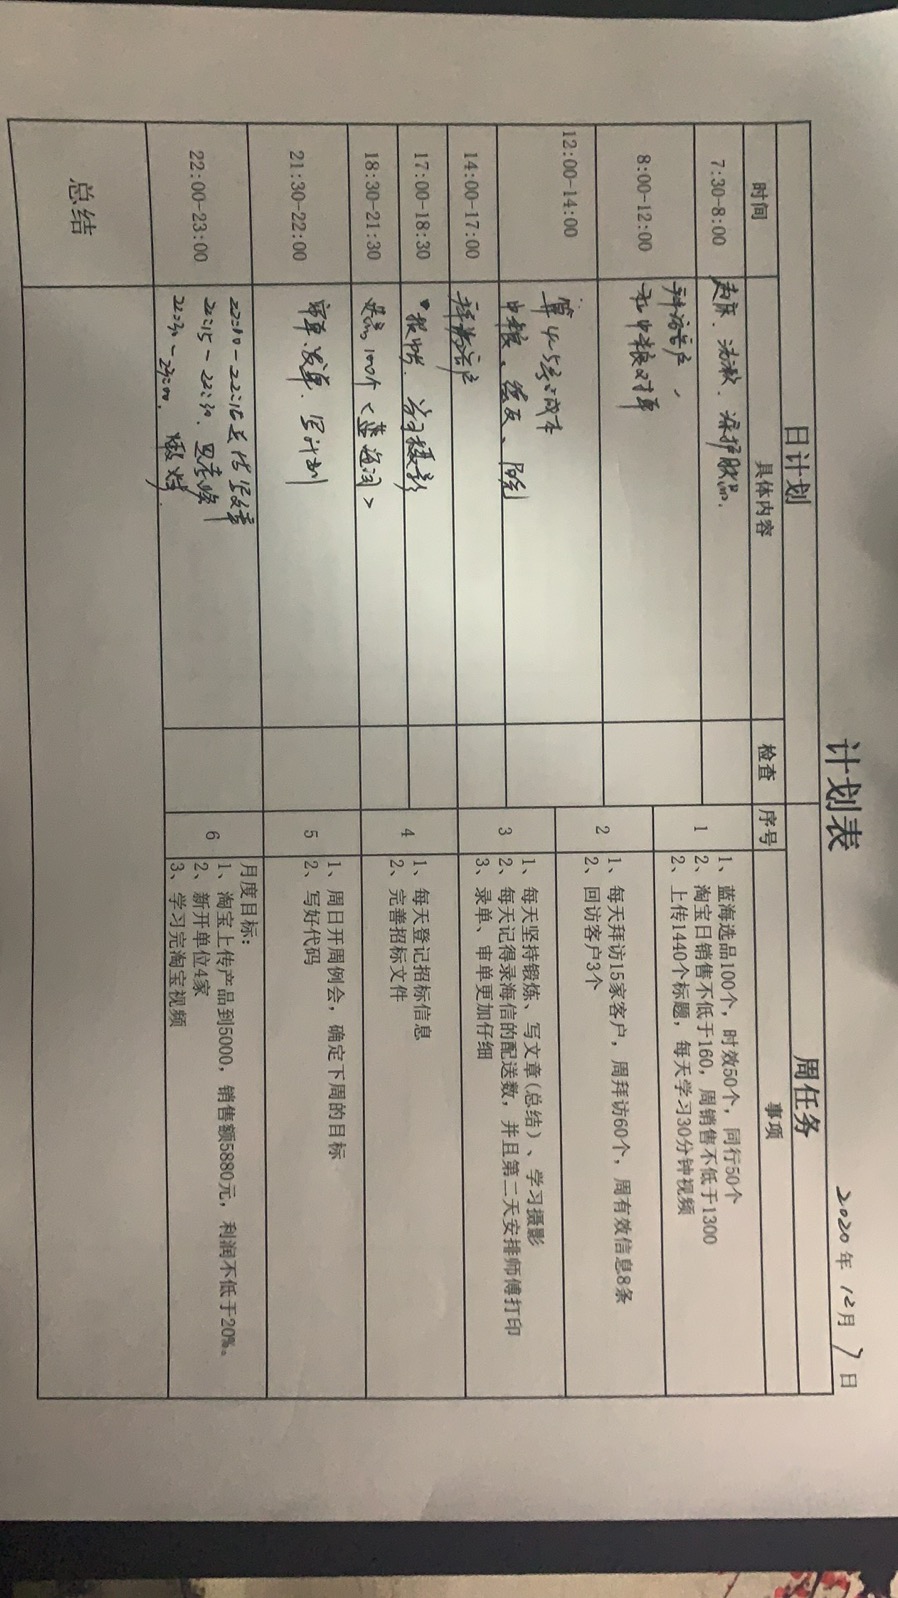 计划表
2020年12月7日
日计划 周任务
时间 具体内容 检查 序号 事项
7:30-8:00 起床、洗漱、保护肤
8:00-12:00 拜访客户、
中粮对单
12:00-14:00 算 成本
中粮、
14:00-17:00 拜访客户
17:00-18:30 学习摄影
18:30-21:30 选品100个<蓝海词>
21:30-22:00 审单、发单、写计划
22:00-23:00 22:00-22:15 写文章
22:15-22:30
22:30-23:00 锻炼
总结
1
1、蓝海选品100个，时效50个，同行50个
2、淘宝日销售不低于160，周销售不低于1300
2、上传1440个标题，每天学习30分钟视频
2
1、每天拜访15家客户，周拜访60个，周有效信息8条
2、回访客户3个
3
1、每天坚持锻炼、写文章(总结)、学习摄影
2、每天记得录海信的配送数，并且第二天安排师傅打印
3、录单、审单更加仔细
4
1、每天登记招标信息
2、完善招标文件
5
1、周日开周例会，确定下周的目标
2、写好代码
6
月度目标:
1、淘宝上传产品到5000，销售额5880元，利润不低于20%。
2、新开单位4家
3、学习完淘宝视频